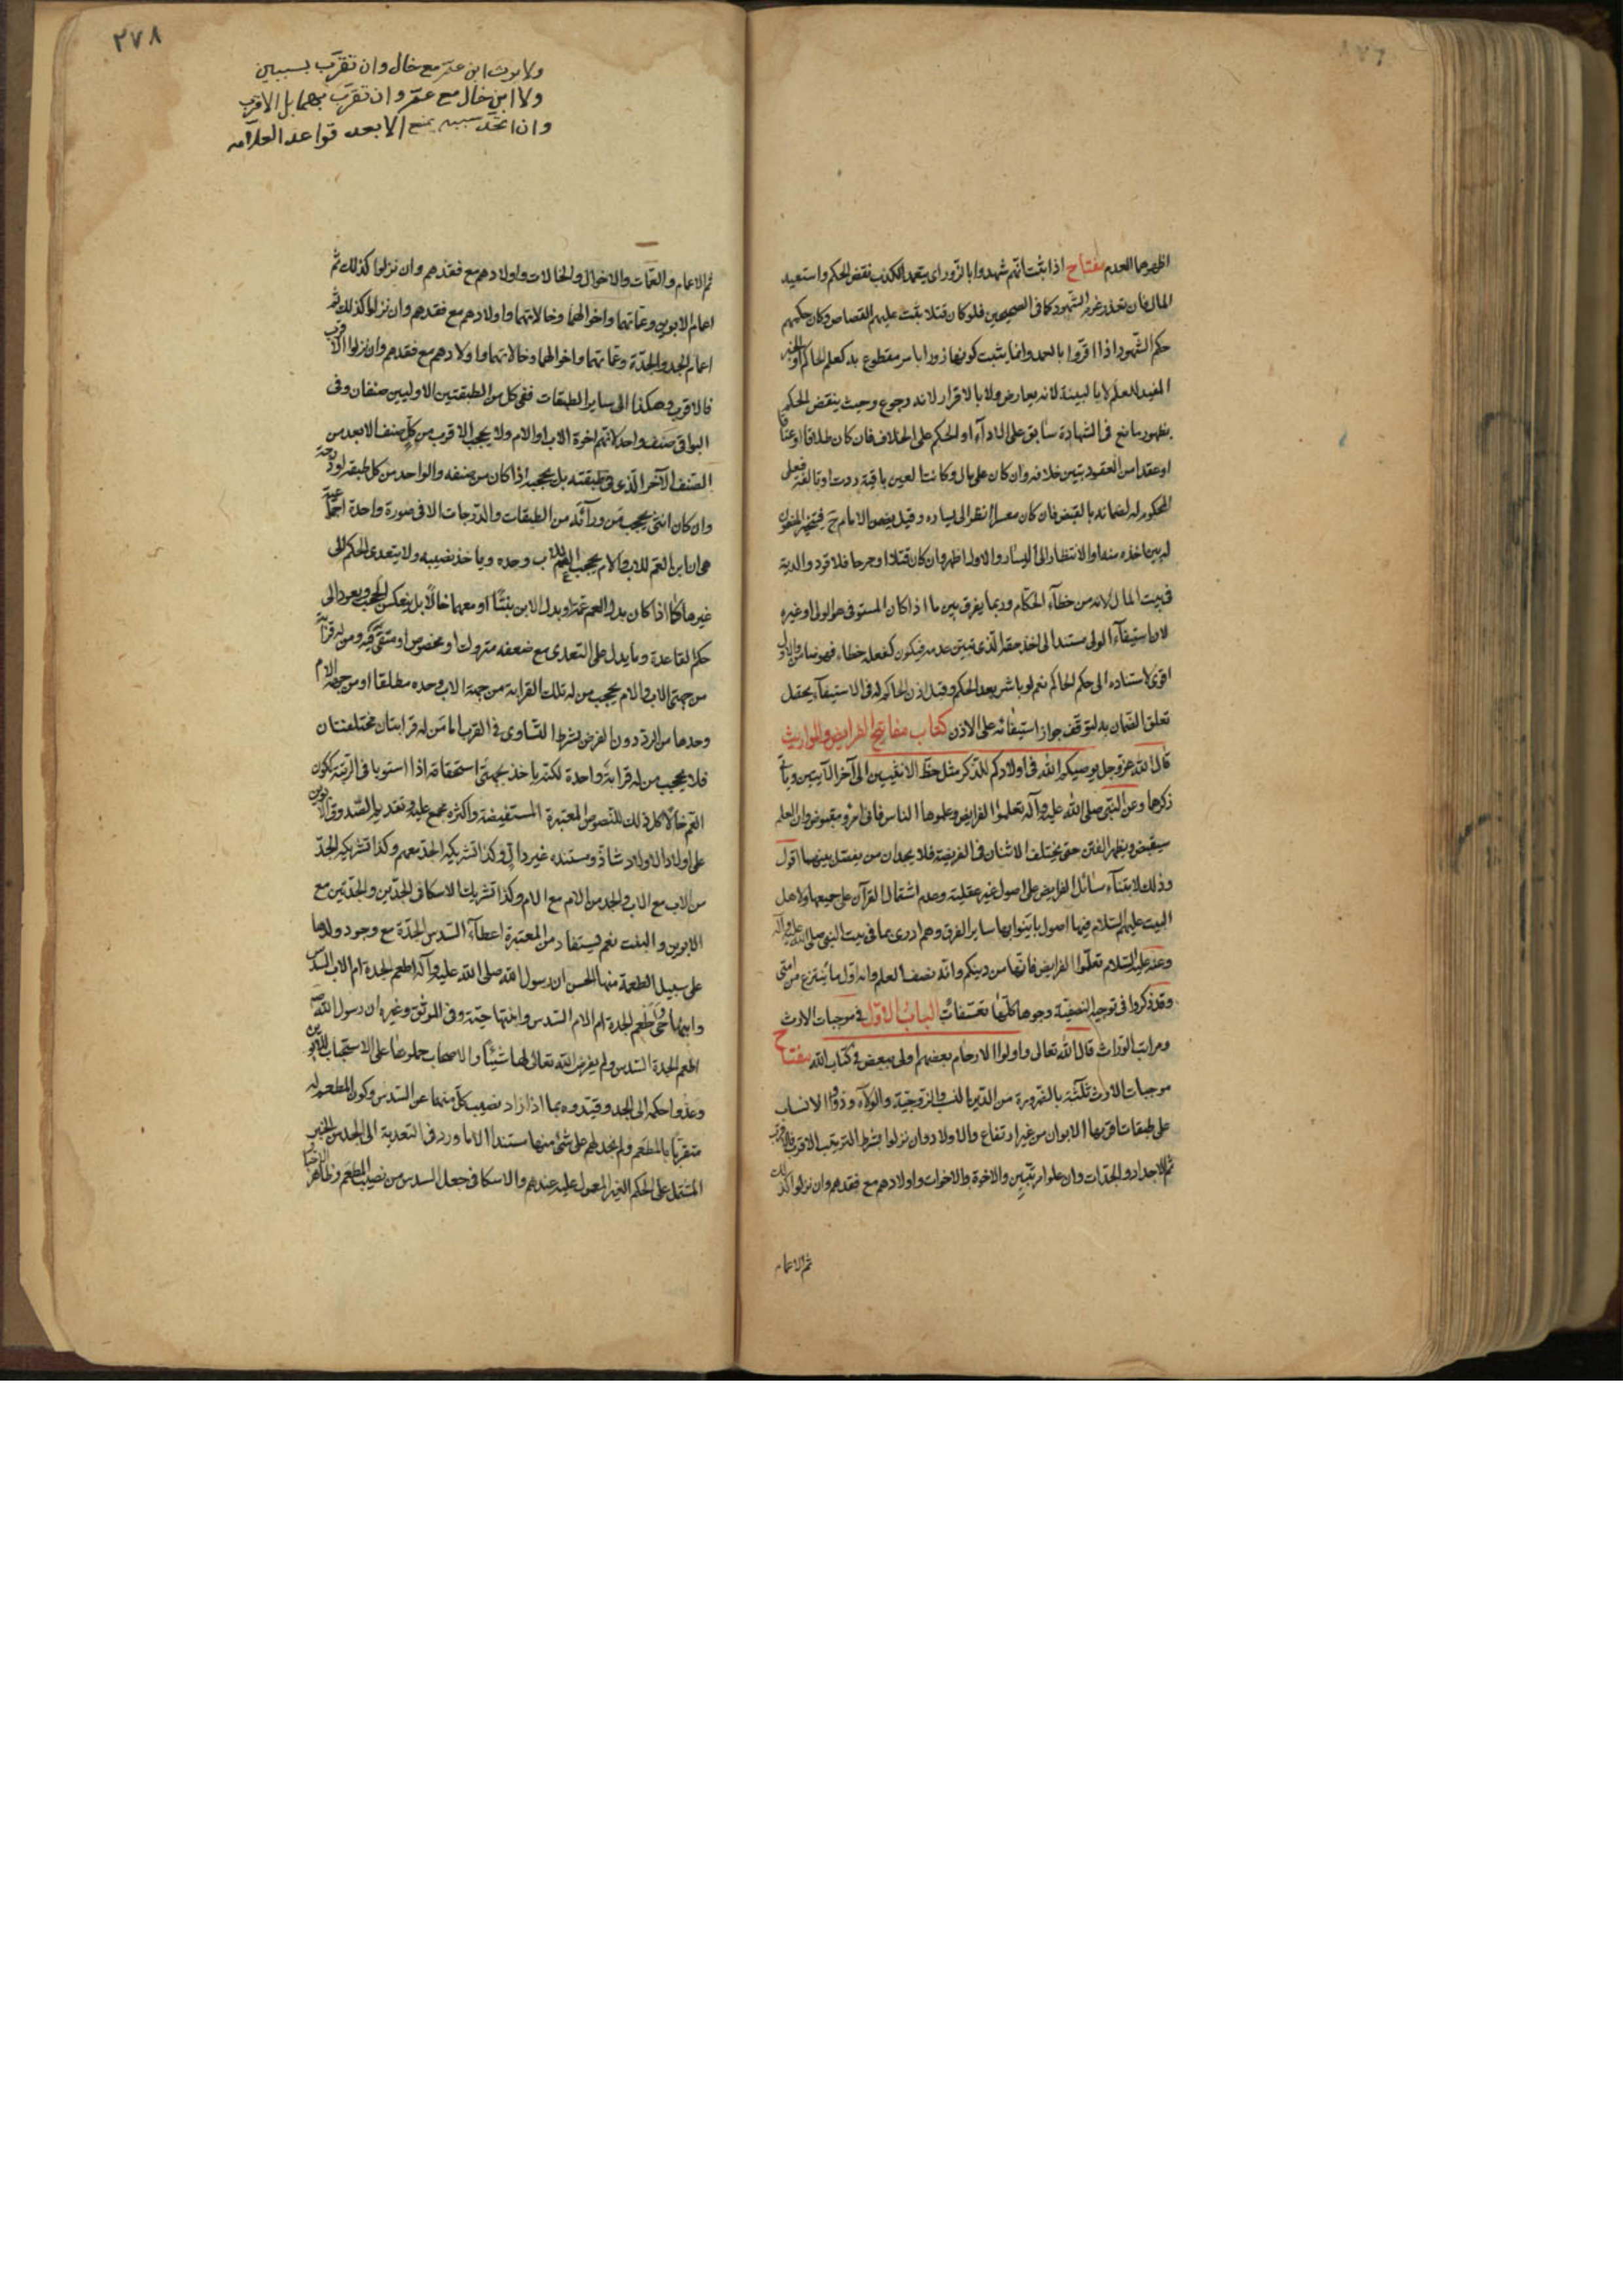 اظهرهما العدم مفتاح اذا ثبت انهم شهدوا بالزور اى بتعمد الكذب نقض الحكم واستعيد
المال فان تعذر غرم الشهود كما فى الصحيحين فلو كان قتلا ثبت عليهم القصاص وكان حكمهم
حكم الشهود اذا اقروا بالعمد وانما يثبت كونها زورا بامر مقطوع به كعلم الحاكم او الخبر
المفيد للعلم لا بالبينة لانه يعارض ولا بالاقرار لانه رجوع وحيث ينقض الحكم
بظهور مانع فى الشهادة سابق على الاداء او الحكم على الخلاف فان كان طلاقا او عتاقا
او عقدا من العقود تبين خلافه وان كان على مال وكانت العين باقية ردت او تالفة فعلى
المحكوم له لضمانه بالقبض فان كان معسرا انظر الى يساره وقيل يضمن الامام ح فيتخير المضمون
له بين اخذه منها والانتظار الى اليسار والاول اظهر وان كان قتلا او جرحا فلا قود والدية
فى بيت المال لانه من خطاء الحكام وربما يفرق بين ما اذا كان المستوفى هو الولى او غيره
لان استيفاء الولى مستند الى اخذ حقه الذى تبين عدمه فيكون كفعله خطاء فهو ضامن والاول
اقوى لاستناده الى حكم الحاكم نعم لو باشر بعد الحكم وقبل اذن الحاكم له فى الاستيفاء يحتمل
تعلق الضمان به لتوقف جواز استيفائه على الاذن كتاب مفاتيح الفرايض والمواريث
قال الله عز وجل يوصيكم الله فى اولادكم للذكر مثل حظ الانثيين الى آخر الآيتين وياتى
ذكرها وعن النبى صلى الله عليه وآله تعلموا الفرايض وعلموها الناس فانى امرؤ مقبوض وان العلم
سيقبض ويظهر الفتن حتى يختلف الاثنان فى الفريضة فلا يجدان من يفصل بينهما اقول
وذلك لابتناء مسائل الفرايض على اصول غير عقلية وعدم اشتمال القرآن على جميعها ولاهل
البيت عليهم السلام فيها اصول باينوا بها ساير الفرق وهم ادرى بما فى بيت النبى صلى الله عليه وآله
وعنه عليه السلام تعلموا الفرايض فانها من دينكم وانه نصف العلم وانه اول ما ينتزع من امتى
وقد ذكروا فى توجيه النصفية وجوها كلها تعسفات الباب الاول فى موجبات الارث
ومراتب الوراث قال الله تعالى واولوا الارحام بعضهم اولى ببعض فى كتاب الله مفتاح
موجبات الارث ثلثة بالضرورة من الدين النسب والزوجية والولاء وذووا الانساب
على طبقات اقربها الابوان من غير ارتفاع والاولاد وان نزلوا بشرط الترتيب الاقرب فالاقرب
ثم الاجداد والجدات وان علوا مرتبين والاخوة والاخوات واولادهم مع فقدهم وان نزلوا كذلك
ثم الاعمام
٢٧٨
ولا يرث ابن عم مع خال وان تقرب بسببين
ولا ابن خال مع عم وان تقرب بهما بل الاقرب
وان اتحد سببه يمنع الابعد قواعد العلامه
ثم الاعمام والعمات والاخوال والخالات واولادهم مع فقدهم وان نزلوا كذلك ثم
اعمام الابوين وعماتهما واخوالهما وخالاتهما واولادهم مع فقدهم وان نزلوا كذلك ثم
اعمام الجد والجدة وعماتهما واخوالهما وخالاتهما واولادهم مع فقدهم وان نزلوا الاقرب
فالاقرب وهكذا الى ساير الطبقات ففى كل من الطبقتين الاوليين صنفان وفى
البواقى صنف واحد لانهم اخوة الاب او الام ولا يحجب الاقرب من كل صنف الابعد من
الصنف الآخر الذى فى طبقته بل يحجبه اذا كان من صنفه والواحد من كل طبقه او درجة
وان كان انثى يحجب من ورائه من الطبقات والدرجات الا فى صورة واحدة اجماعية
هى ان ابن العم للاب والام يحجب العم للاب وحده وياخذ نصيبه ولا يتعدى الحكم الى
غيرها كما اذا كان بدل العم عمة او بدل الابن بنتا او معهما خالا بل ينعكس الحجب ويعود الى
حكم القاعدة وما يدل على التعدى مع ضعفه متروك او مخصوص او متقى فيه ومن له قرابة
من جهتى الاب والام يحجب من له تلك القرابة من جهة الاب وحده مطلقا او من جهة الام
وحدها من الرد دون الفرض بشرط التساوى فى القرب اما من له قرابتان مختلفتان
فلا يحجب من له قرابة واحدة لكنه ياخذ بجهتى استحقاقه اذا استويا فى الرتبة ككون
العم خالا كل ذلك للنصوص المعتبرة المستفيضة واكثره مجمع عليه وتقديم الصدوق الابوين
على اولاد الاولاد شاذ ومستنده غير دال وكذا تشريكه الجد معهم وكذا تشريكه الجد
من الاب مع الاب والجد من الام مع الام وكذا تشريك الاسكافى الجدين والجدتين مع
الابوين والبنت نعم يستفاد من المعتبرة اعطاء السدس الجدة مع وجود ولدها
على سبيل الطعمة منها الحسن ان رسول الله صلى الله عليه وآله اطعم الجدة ام الاب السدس
وابنها حى واطعم الجدة ام الام السدس وابنتها حية وفى الموثق وغيره ان رسول الله ص
اطعم الجدة السدس ولم يفرض الله تعالى لها شيئا والاصحاب حملوها على الاستحباب للابوين
وعدوا حكمه الى الجد وقيدوه بما اذا زاد نصيب كل منهما عن السدس وكون المطعم له
متقربا بالمطعم ولم نجد لهم على شئ منها مستندا الا ما ورد فى التعدية الى الجد من الخبر
المشتمل على الحكم الغير المعول عليه عندهم والاسكافى جعل السدس من نصيب المطعم وظاهر